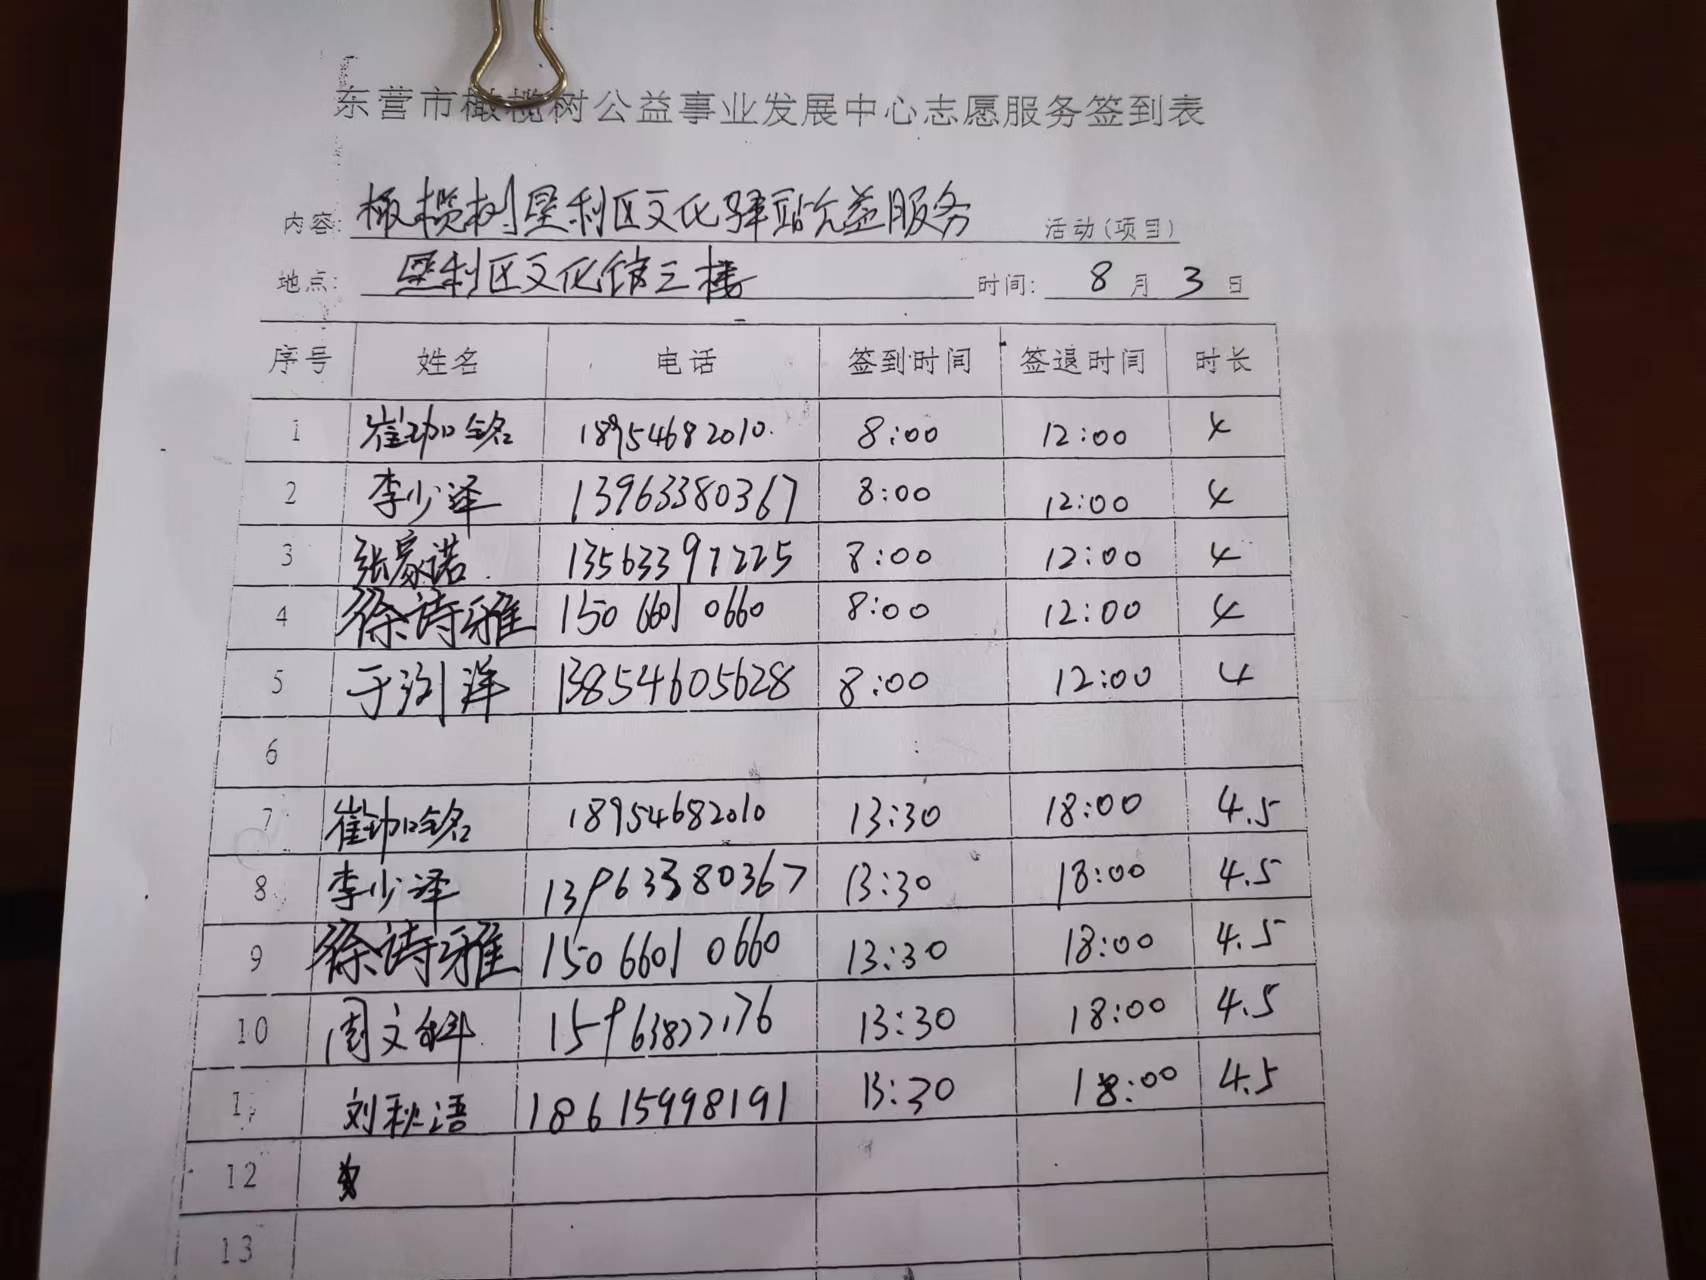 东营市橄榄树公益事业发展中心志愿服务签到表
内容: 橄榄树垦利区文化驿站公益服务 活动(项目)
地点: 垦利区文化馆三楼 时间: 8月3日
序号 姓名 电话 签到时间 签退时间 时长
1 崔珈铭 18954682010 8:00 12:00 4
2 李少泽 13963380367 8:00 12:00 4
3 张家诺 13563397225 8:00 12:00 4
4 徐诗雅 15066010660 8:00 12:00 4
5 于浏洋 13854605628 8:00 12:00 4
6
7 崔珈铭 18954682010 13:30 18:00 4.5
8 李少泽 13963380367 13:30 18:00 4.5
9 徐诗雅 15066010660 13:30 18:00 4.5
10 周文科 13:30 18:00 4.5
11 刘秋语 18615998191 13:30 18:00 4.5
12
13